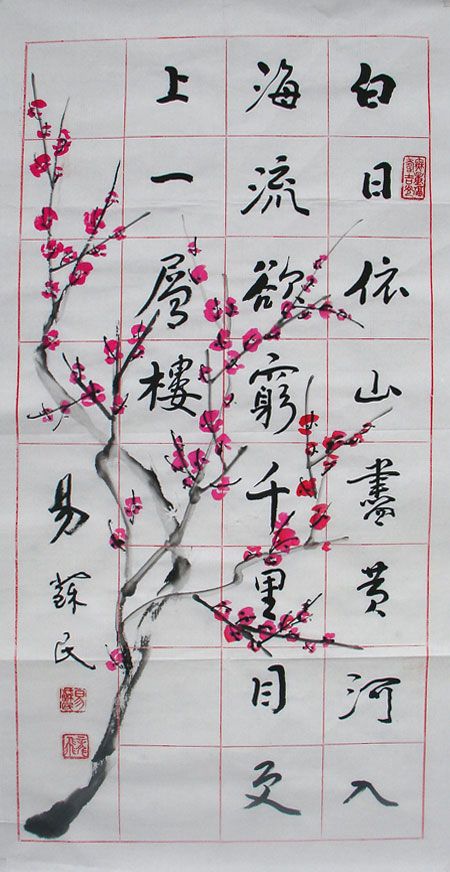 白日依山盡黄河入
海流欲窮千里目更
上一層樓
易蘇民